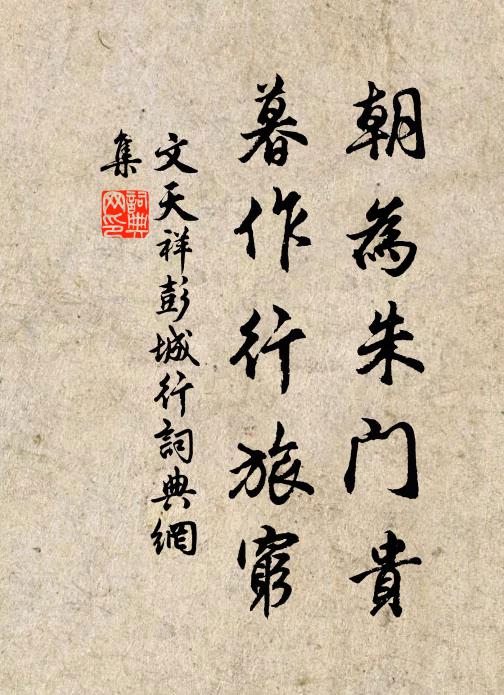 朝為朱門貴
暮作行旅窮
文天祥彭城行詞典網
集
詞典網印